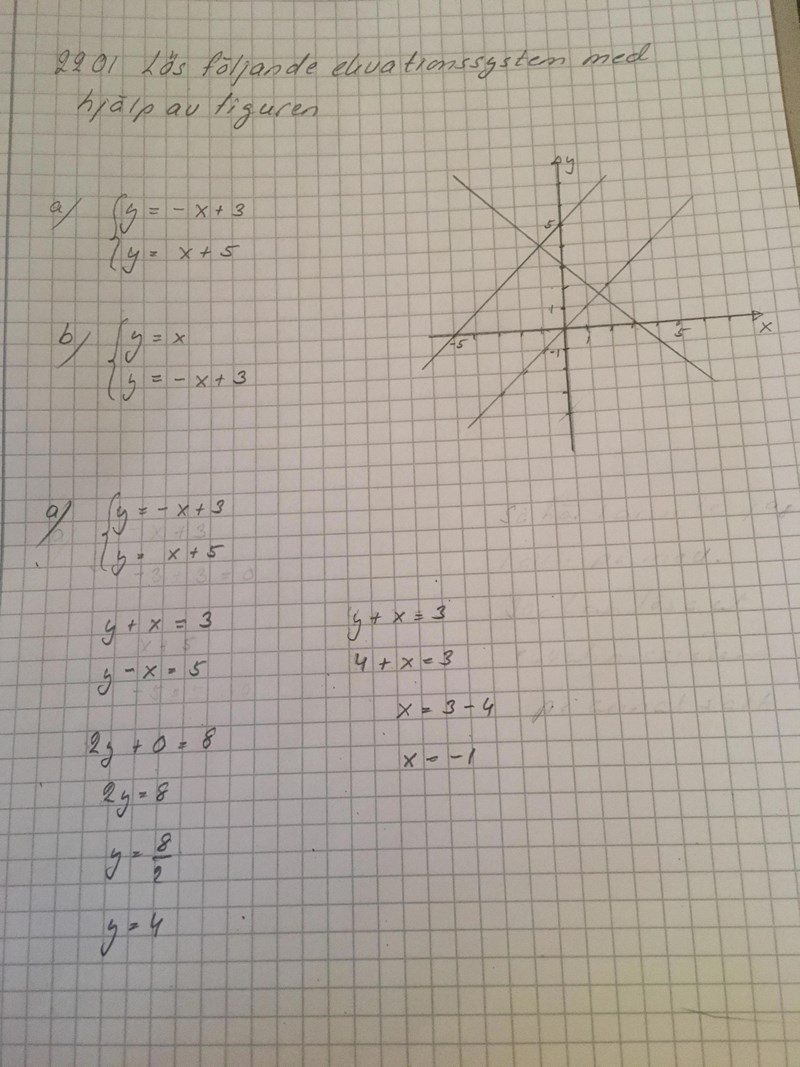 2201 Lös följande ekvationssystem med
hjälp av figuren
a) { y = -x + 3
y = x + 5
b) { y = x
y = -x + 3
y
5
1
-5
-1
1
5
x
a) { y = -x + 3
y = x + 5
y + x = 3
y - x = 5
2y + 0 = 8
2y = 8
y = 8/2
y = 4
y + x = 3
4 + x = 3
x = 3 - 4
x = -1